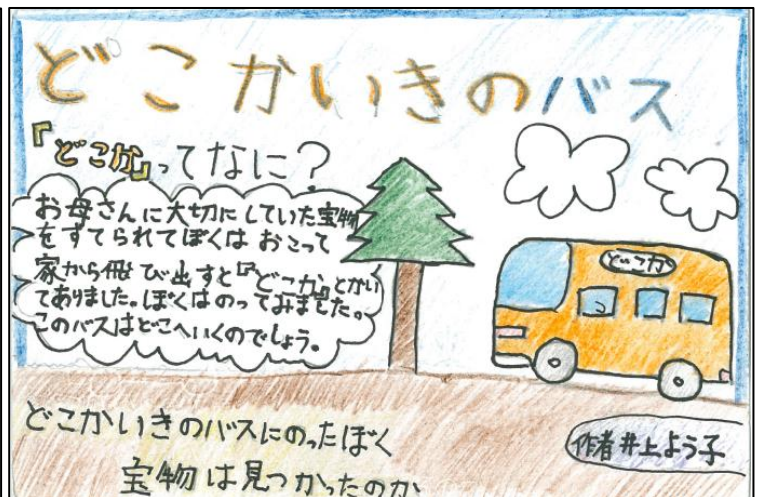 どこかいきのバス
『どこか』ってなに？
お母さんに大切にしていた宝物
をすてられてぼくは おこって
家から飛び出すと『どこか』とかい
てありました。ぼくはのってみました。
このバスはどこへいくのでしょう。
どこか
どこかいきのバスにのったぼく
宝物は見つかったのか
作者 井上よう子